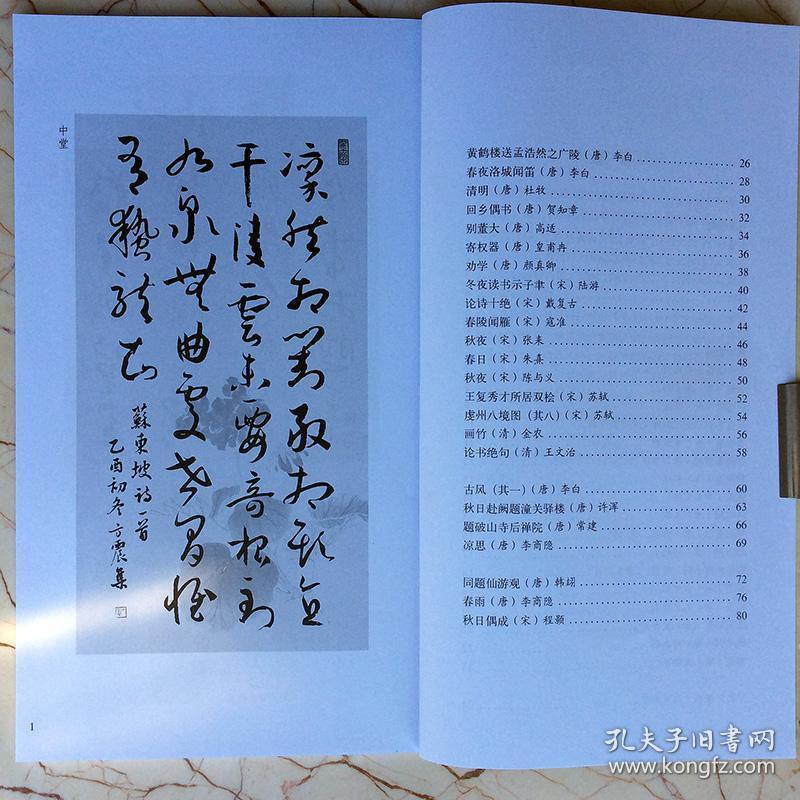 中堂
凜然相對敢相欺直
干凌雲未要奇根到
九泉無曲處世間惟
有蟄龍知
蘇東坡詩一首
乙酉初冬方震集
1
黄鹤楼送孟浩然之广陵（唐）李白 …… 26
春夜洛城闻笛（唐）李白 …… 28
清明（唐）杜牧 …… 30
回乡偶书（唐）贺知章 …… 32
别董大（唐）高适 …… 34
寄权器（唐）皇甫冉 …… 36
劝学（唐）颜真卿 …… 38
冬夜读书示子聿（宋）陆游 …… 40
论诗十绝（宋）戴复古 …… 42
春陵闻雁（宋）寇准 …… 44
秋夜（宋）张耒 …… 46
春日（宋）朱熹 …… 48
秋夜（宋）陈与义 …… 50
王复秀才所居双桧（宋）苏轼 …… 52
虔州八境图（其八）（宋）苏轼 …… 54
画竹（清）金农 …… 56
论书绝句（清）王文治 …… 58
古风（其一）（唐）李白 …… 60
秋日赴阙题潼关驿楼（唐）许浑 …… 63
题破山寺后禅院（唐）常建 …… 66
凉思（唐）李商隐 …… 69
同题仙游观（唐）韩翃 …… 72
春雨（唐）李商隐 …… 76
秋日偶成（宋）程颢 …… 80
孔夫子旧书网
www.kongfz.com